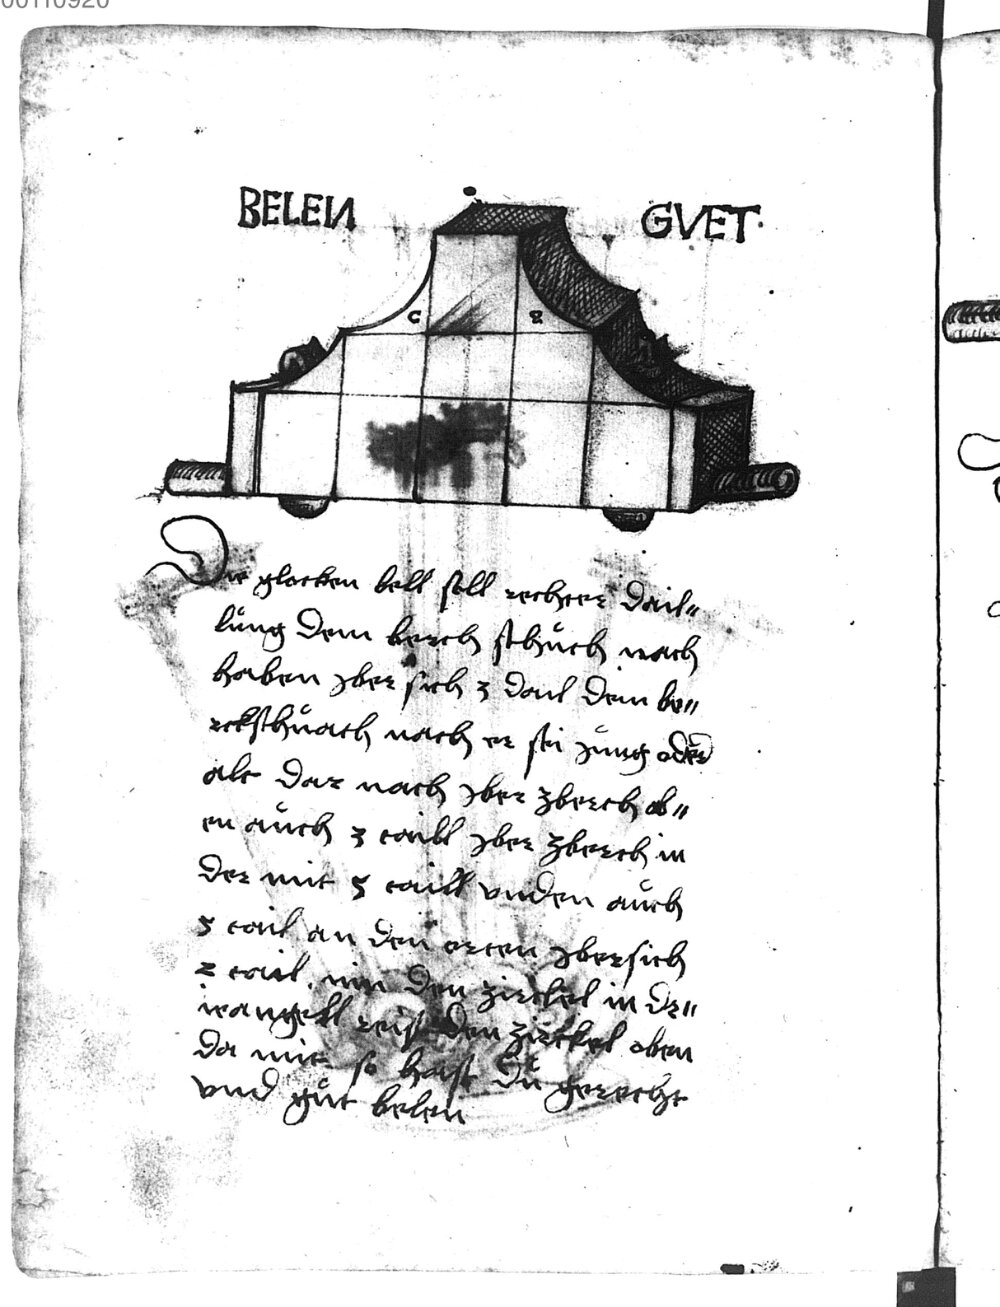 00110920
BELEN GVET
c 2
Die glocken bell soll rechter dail„
lüng dem berch schüch nach
haben yber sich 3 dail dem be„
rckschüach nach er sei jüng oder
alt dar nach yber zberch ob„
en aüch 3 taill yber zberch in
der mit 5 taill vnden aüch
5 tail an den orten ybersich
2 tail nim den zirckel in dr„
iangell reis den zirckel oben
da mit so hast dü gerecht
vnd güt belen